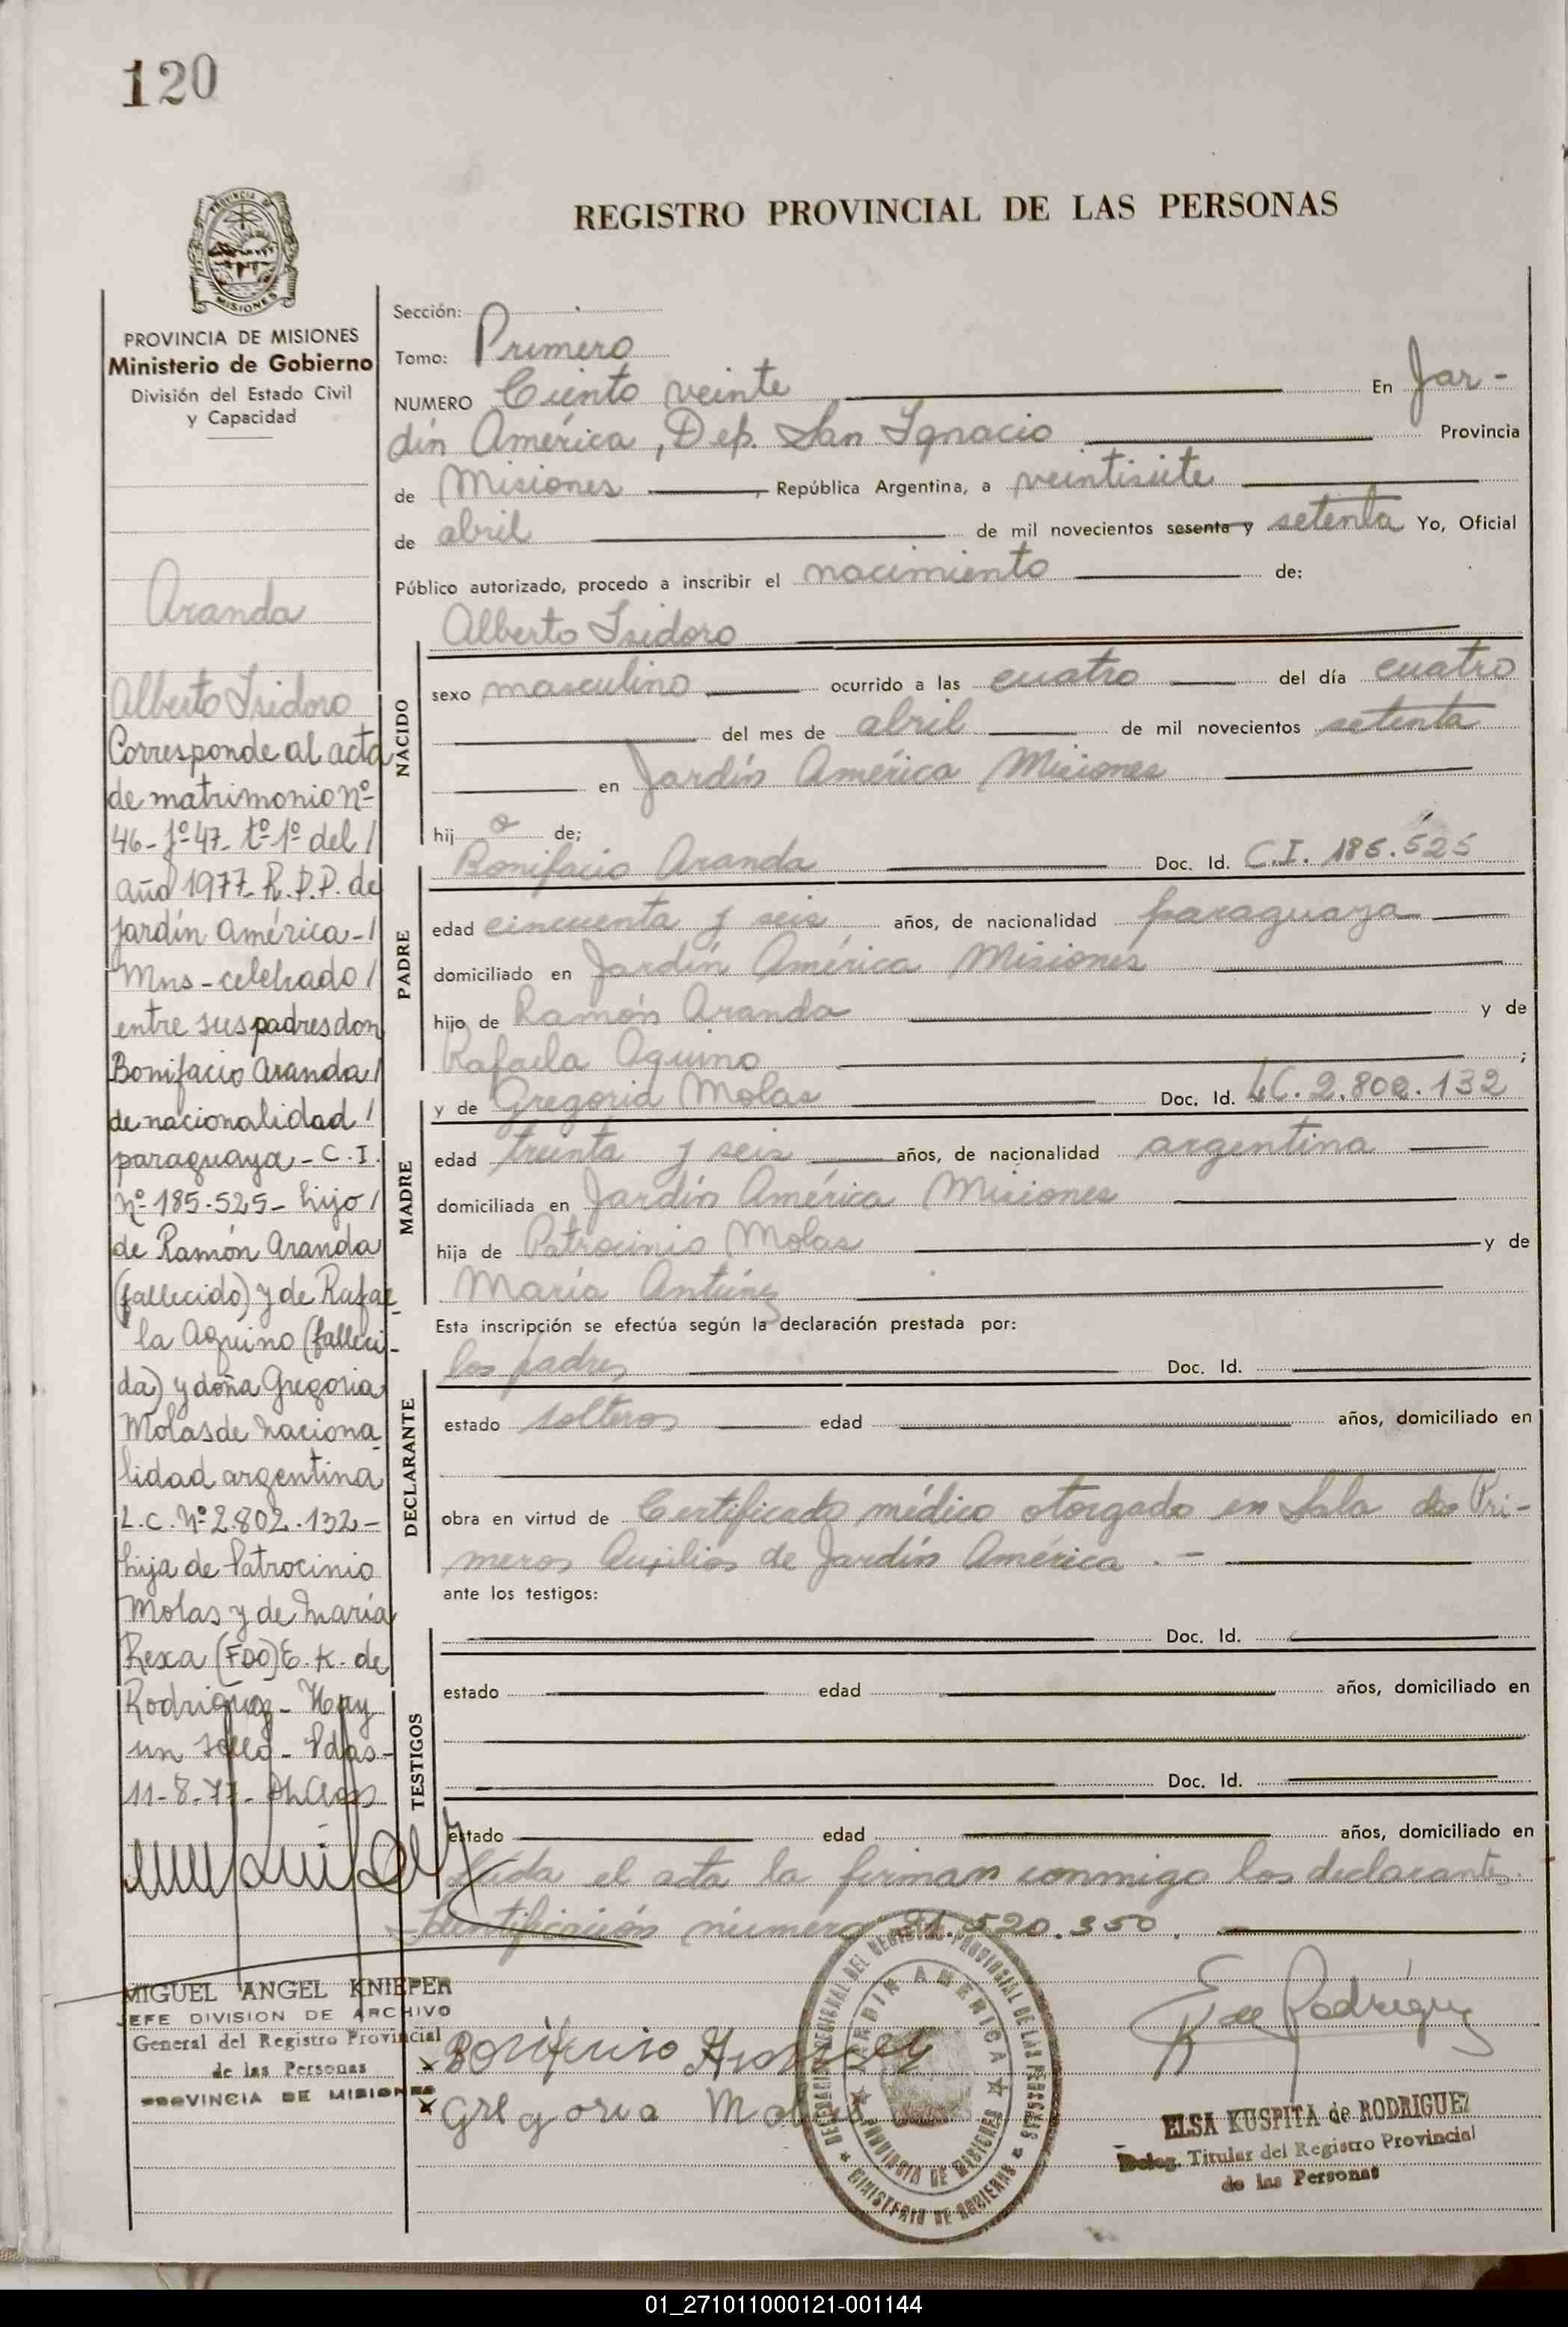 120
REGISTRO PROVINCIAL DE LAS PERSONAS
PROVINCIA DE MISIONES
Ministerio de Gobierno
División del Estado Civil
y Capacidad
Aranda
Alberto Isidoro
Corresponde al acta
de matrimonio nº
46- fº 47- tº 1º del /
año 1977- R.P.P. de
Jardín América- /
Mns - celebrado /
entre sus padres don
Bonifacio Aranda /
de nacionalidad /
paraguaya - C.I.
Nº 185.525 - hijo /
de Ramón Aranda
(fallecido) y de Rafae-
la Aquino (falleci-
da) y doña Gregoria
Molas de naciona-
lidad argentina
L.C. Nº 2.802.132 -
hija de Patrocinio
Molas y de María
Rexa (FDO) E. K. de
Rodriguez - Hay
un sello - Pdas -
11-8-77-
MIGUEL ANGEL KNIEPER
JEFE DIVISION DE ARCHIVO
General del Registro Provincial
de las Personas
PROVINCIA DE MISIONES
Sección:
Tomo: Primero
NUMERO Ciento veinte En Jar-
dín América, Dep. San Ignacio Provincia
de Misiones, República Argentina, a veintisiete
de abril de mil novecientos sesenta y setenta Yo, Oficial
Público autorizado, procedo a inscribir el nacimiento de:
Alberto Isidoro
NACIDO
sexo masculino ocurrido a las cuatro del día cuatro
del mes de abril de mil novecientos setenta
en Jardín América Misiones
hijo de;
Bonifacio Aranda Doc. Id. C.I. 185.525
PADRE
edad cincuenta y seis años, de nacionalidad paraguaya
domiciliado en Jardín América Misiones
hijo de Ramón Aranda y de
Rafaela Aquino ;
y de Gregoria Molas Doc. Id. LC. 2.802.132
MADRE
edad treinta y seis años, de nacionalidad argentina
domiciliada en Jardín América Misiones
hija de Patrocinio Molas y de
María Antúnez
Esta inscripción se efectúa según la declaración prestada por:
los padres Doc. Id.
DECLARANTE
estado solteros edad años, domiciliado en
obra en virtud de Certificado médico otorgado en Sala de Pri-
meros Auxilios de Jardín América . -
ante los testigos:
Doc. Id.
TESTIGOS
estado edad años, domiciliado en
Doc. Id.
estado edad años, domiciliado en
Leída el acta la firman conmigo los declarantes.
Identificación número 21.520.350.
Bonifacio Aranda
Gregoria Molas
DELEGACION REGIONAL DEL REGISTRO PROVINCIAL DE LAS PERSONAS
JARDIN AMERICA
PROVINCIA DE MISIONES
MINISTERIO DE GOBIERNO
E K de Rodríguez
ELSA KUSPITA de RODRIGUEZ
Deleg. Titular del Registro Provincial
de las Personas
01_271011000121-001144